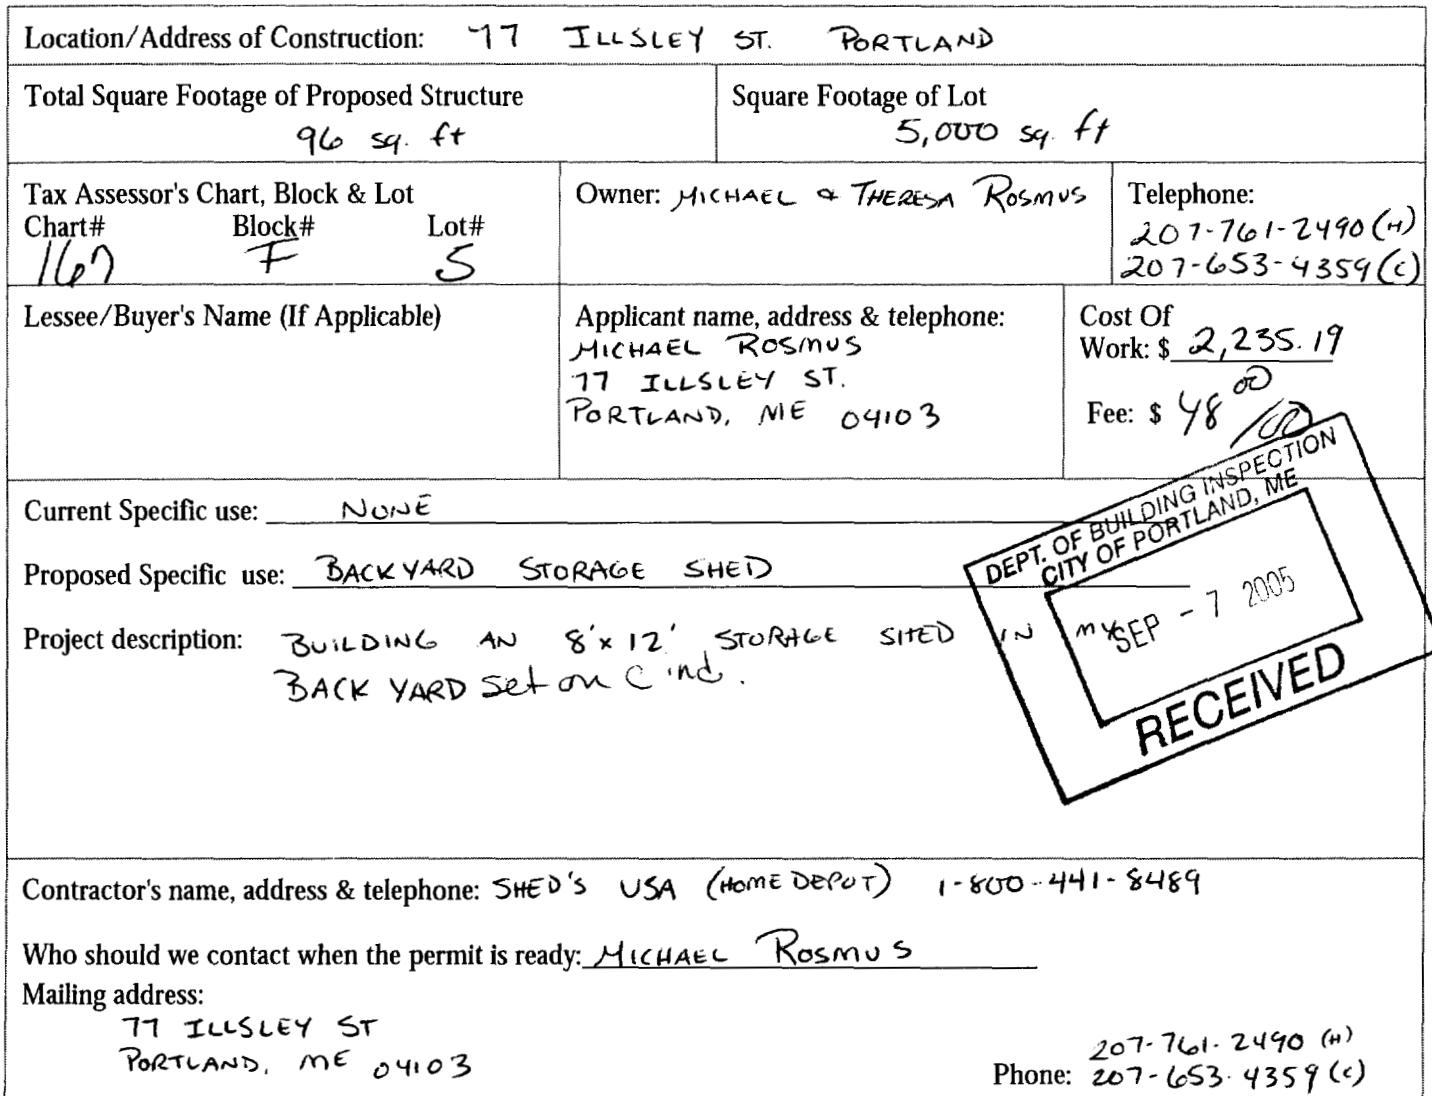 Location/Address of Construction: 77 ILLSLEY ST. PORTLAND
Total Square Footage of Proposed Structure
96 sq. ft
Square Footage of Lot
5,000 sq. ft
Tax Assessor's Chart, Block & Lot
Chart# Block# Lot#
167 F 5
Owner: MICHAEL & THERESA ROSMUS
Telephone:
207-761-2490 (H)
207-653-4359 (C)
Lessee/Buyer's Name (If Applicable)
Applicant name, address & telephone:
MICHAEL ROSMUS
77 ILLSLEY ST.
PORTLAND, ME 04103
Cost Of
Work: $ 2,235.19
Fee: $ 48 00
Current Specific use: NONE
Proposed Specific use: BACKYARD STORAGE SHED
Project description: BUILDING AN 8'x12' STORAGE SHED IN MY
BACK YARD set on
DEPT. OF BUILDING INSPECTION
CITY OF PORTLAND, ME
SEP - 7 2005
RECEIVED
Contractor's name, address & telephone: SHED'S USA (HOME DEPOT) 1-800-441-8489
Who should we contact when the permit is ready: MICHAEL ROSMUS
Mailing address:
77 ILLSLEY ST
PORTLAND, ME 04103
207-761-2490 (H)
Phone: 207-653-4359 (C)